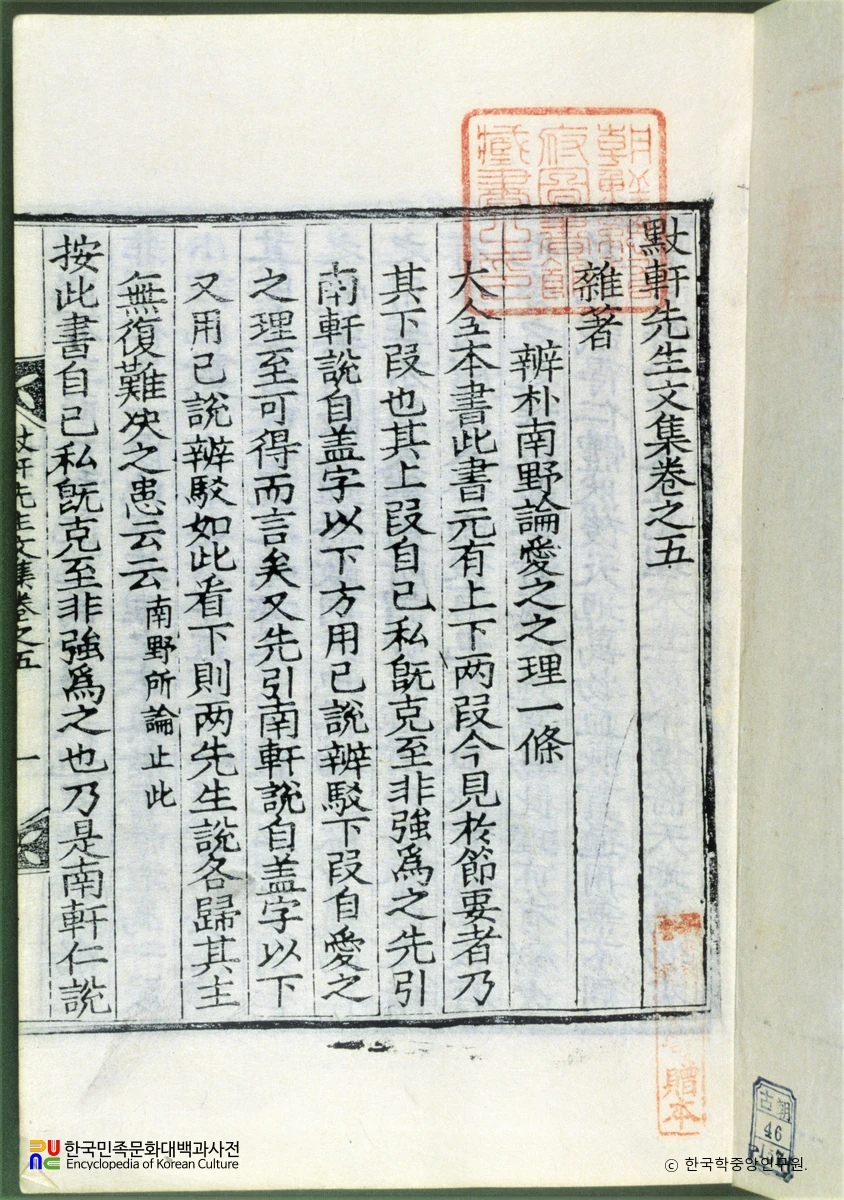 默軒先生文集卷之五
雜著
辨朴南野論愛之之理一條
大全本書此書元有上下两段今見於節要者乃
其下段也其上段自己私旣克至非強爲之先引
南軒說自盖字以下方用己說辨駁下段自愛之
之理至可得而言矣又先引南軒說自盖字以下
又用己說辨駁如此看下則两先生說各歸其主
無復難决之患云云南野所論止此
按此書自己私旣克至非強爲之也乃是南軒仁說
文集卷之五
一
朝鮮總督府圖書館藏書之印
贈本
古朝
46
한국민족문화대백과사전
Encyclopedia of Korean Culture
© 한국학중앙연구원.